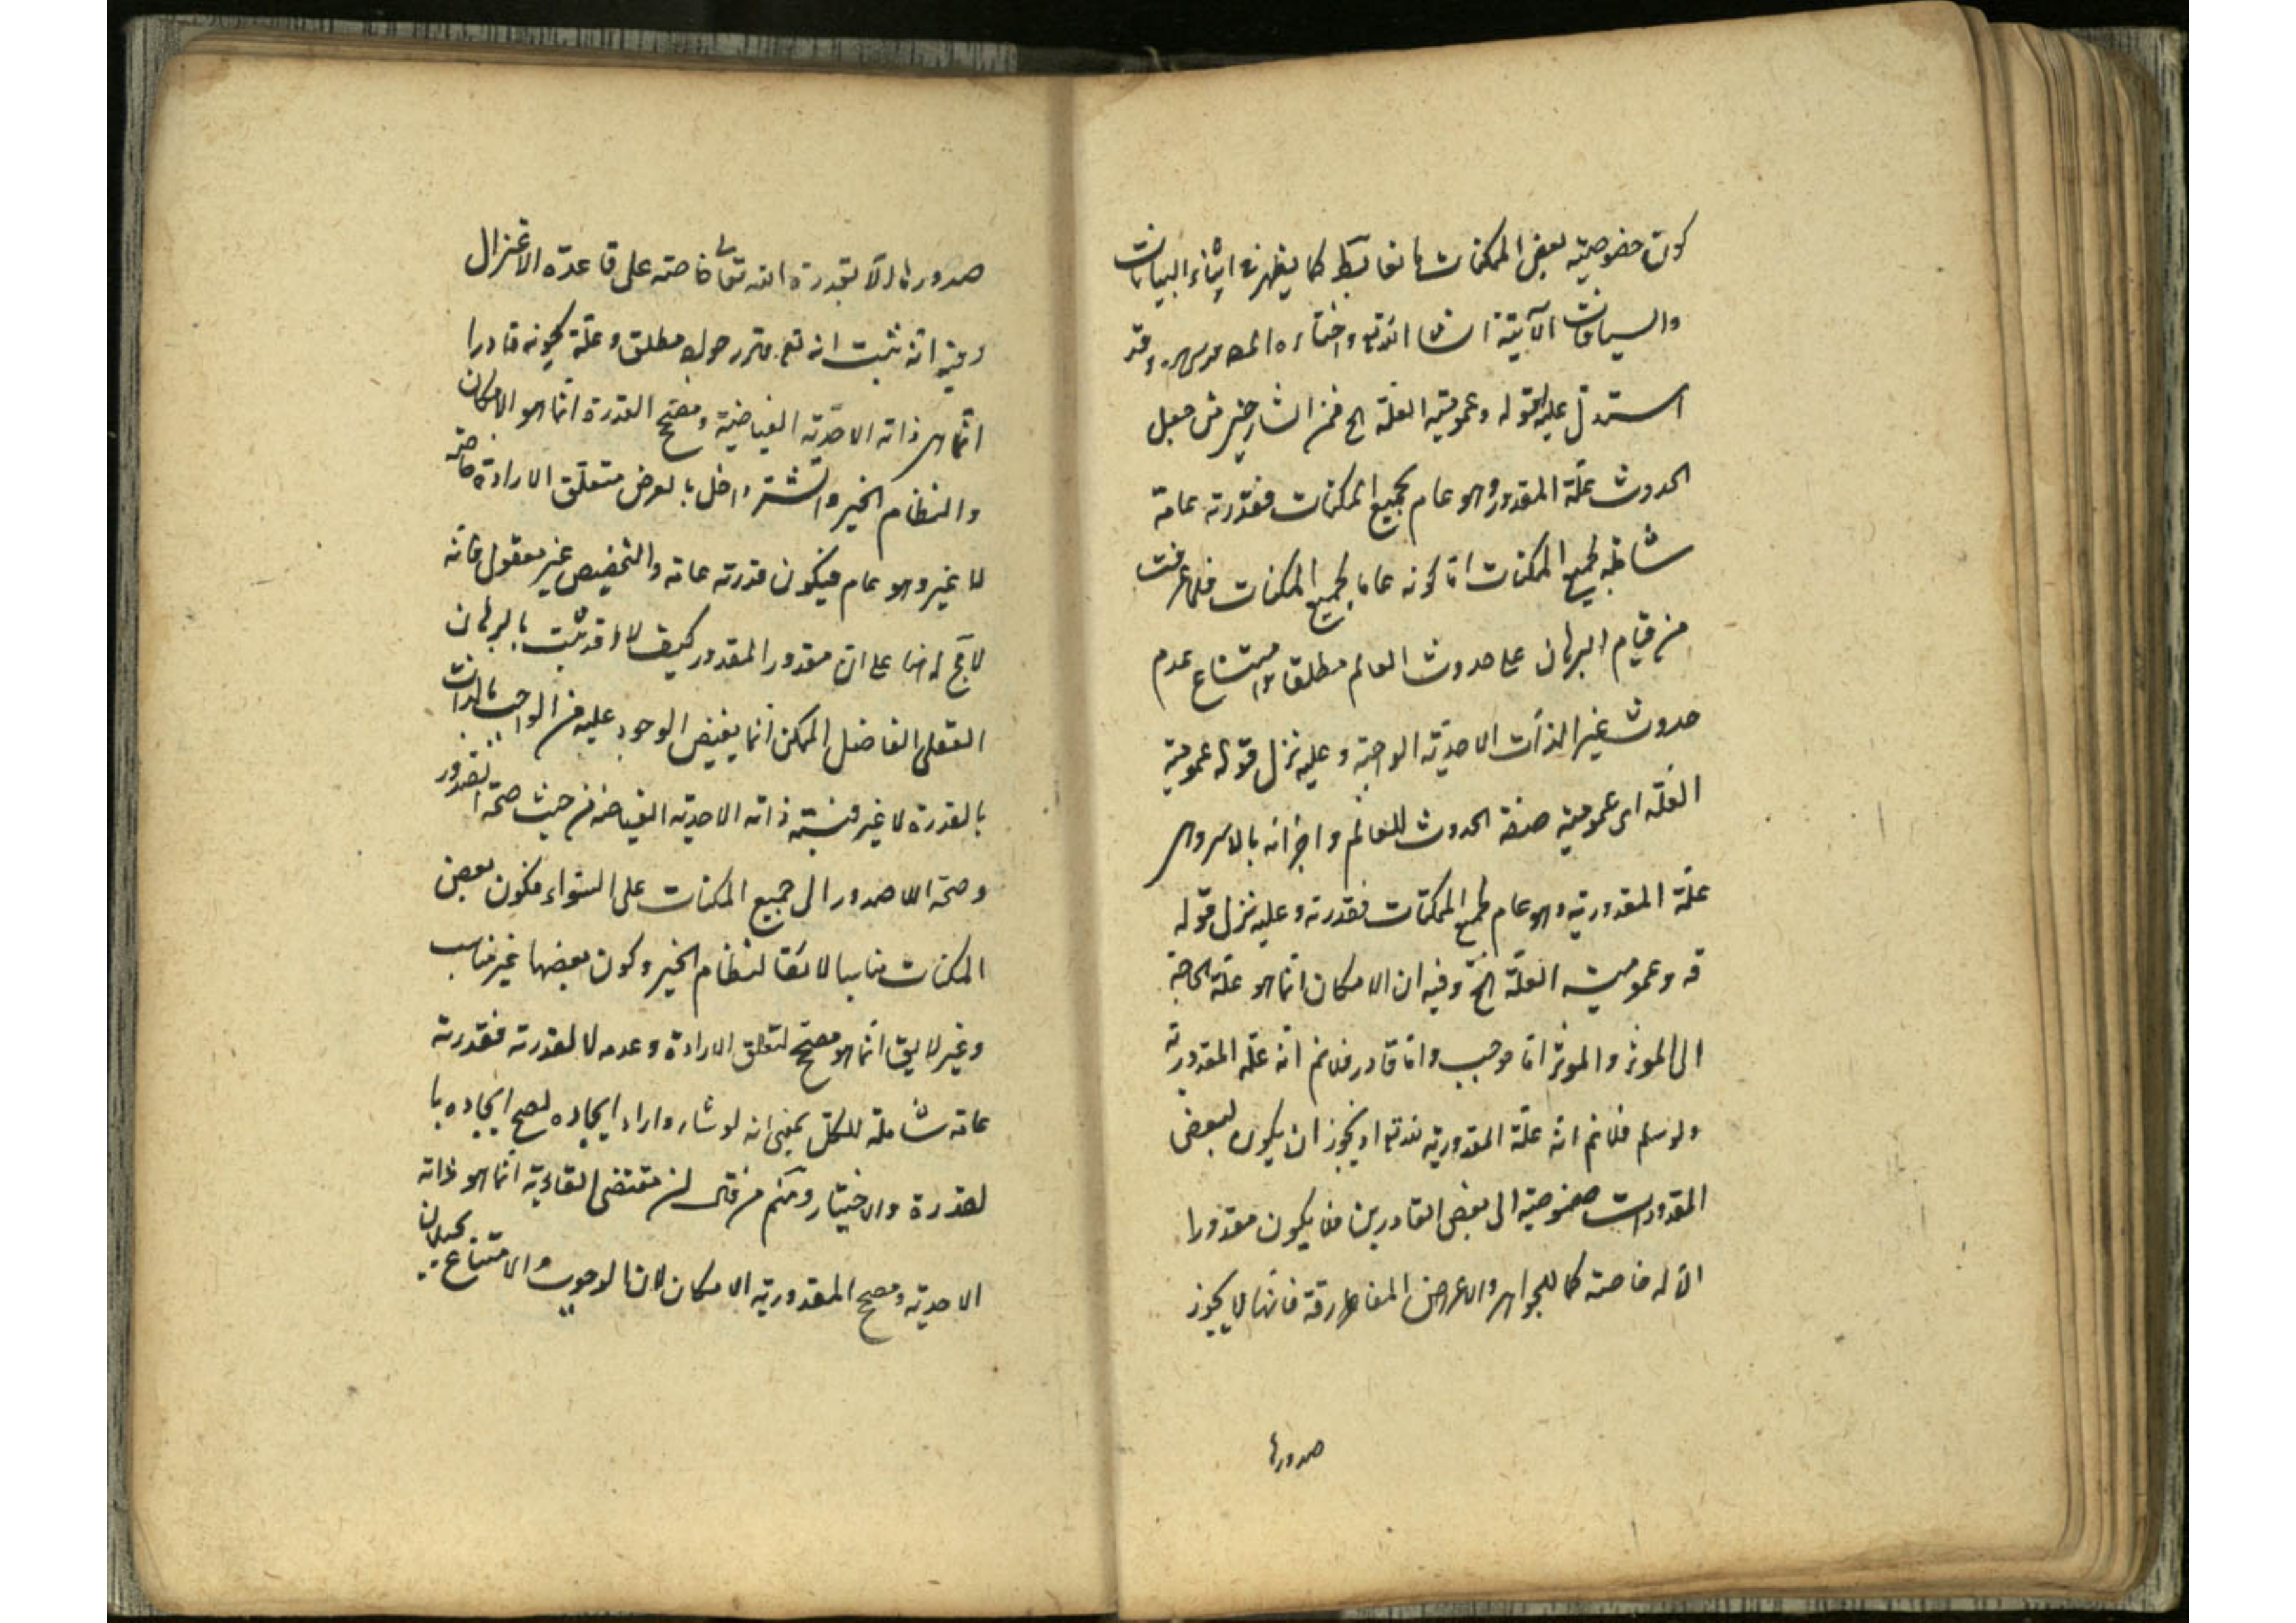 كون خصوصية بعض الممكنات مانعا بط كما يظهر فى اثناء البيانات
والسياقات الآتية انشا الله تع واختاره المص قدس سره وقد
استدل عليه بقوله وعمومية العلة الخ فمن الشارحين من جعل
الحدوث علة المقدور وهو عام لجميع الممكنات فقدرته عامة
شاملة لجميع الممكنات اما كونه عاما لجميع الممكنات فلما عرفت
من قيام البرهان على حدوث العالم مطلقا وامتناع عدم
حدوث غير الذات الاحدية الواجبة وعليه نزل قوله عمومية
العلة اى عمومية صفة الحدوث للعالم واجزائه بالاسر وهى
علة المقدورية وهو عام لجميع الممكنات فقدرته وعليه نزل قوله
قه وعمومية العلة الخ وفيه ان الامكان انما هو علة الحاجة
الى الموثر والموثر اما موجب واما قادر فلانم انه علة المقدورية
ولو سلم فلانم انه علة المقدورية له تع اذ يجوز ان يكون لبعض
المقدورات خصوصية الى بعض القادرين فلا يكون مقدورا
الا له خاصة كما للجواهر والاعراض المفارقة فانها لا يجوز
صدورها
صدورها الا بقدرة الله تعالى خاصة على قاعدة الاعتزال
وفيه انه ثبت انه تع مقرر حول مطلق وعلة كونه قادرا
انما هى ذاته الاحدية الفياضية ومصحح القدرة انما هو الامكان
والنظام الخير والشر داخل بالعرض متعلق الارادة خاصة
لا غير وهو عام فيكون قدرته عامة والتخصيص غير معقول فانه
لا يجع له هنا على ان مقدور المقدور كيف لا وقد ثبت بالبرهان
العقلى الفاضل الممكن انما يفيض الوجود عليه من الواجب بالذات
بالقدرة لا غير فنسبة ذاته الاحدية الفياضة من حيث صحة الصدور
وصحة اللاصدور الى جميع الممكنات على السواء فكون بعض
الممكنات مناسبا لائقا لنظام الخير وكون بعضها غير مناسب
وغير لايق انما هو مصحح لتعلق الارادة وعدمه لا لقدرته فقدرته
عامة شاملة للكل بمعنى انه لو شاء واراد ايجاده لصح ايجاده با
لقدرة والاختيار ومنهم من قال ان مقتضى القادرية انما هو ذاته
الاحدية ومصحح المقدورية الامكان لان الوجوب والامتناع يحيلان